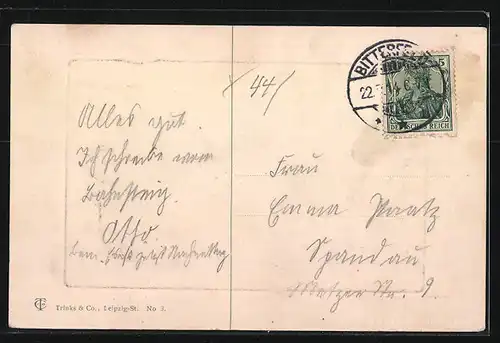 Alles gut.
Ich schreibe vom
Bahnsteig.
Otto.
44/
BITTERFELD
22.
5
DEUTSCHES REICH
Frau
Emma Paatz
Spandau
Metzer Str. 9.
Trinks & Co., Leipzig-St. No 3.